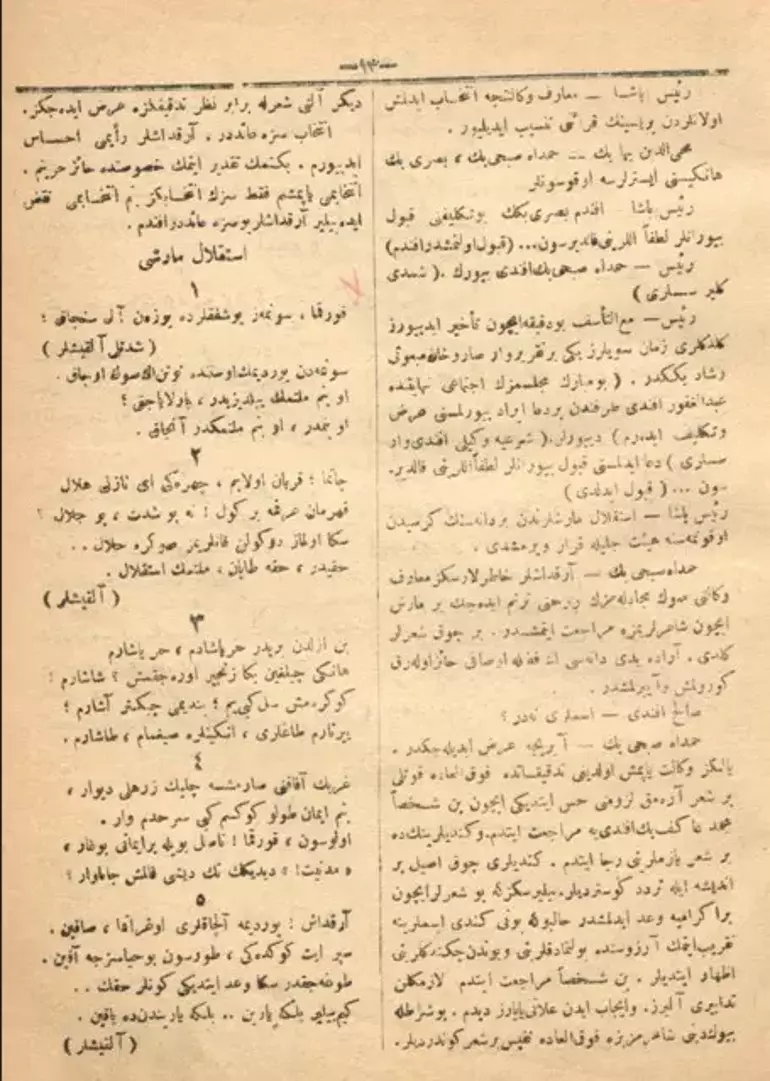 —٩٣—
رئیس پاشا — معارف وکالتنجه انتخاب ایدلمش
اولانلردن بریسینك قرائتی تنسیب ایدیلیور .
محی‌الدین بها بك — حمداﷲ صبحی بك ، بصری بك
هانکیسنی ایسترلرسه اوقوسونلر
رئیس پاشا — افندم بصری بکك بوتکلیفنی قبول
بیورانلر لطفاً اللرینی قالدیرسون... (قبول اولنمشدر افندم)
رئیس — حمداﷲ صبحی بك افندی بیورك .( شمدی
کلیر سسلری )
رئیس — مع‌التأسف بودقیقه ایچون تأخیر ایدییورز
کلدکلری زمان سویلرز یکی برتقریر وار صاروخان مبعوثی
رشاد بککدر . ( بومبارك مجلسمزك اجتماعی نهایتنده
عبدالغفور افندی طرفندن بردعا ایراد بیورلمسنی عرض
وتکلیف ایدرم ) دییورلر.( شرعیه وکیلی افندی وار
سسلری ) دعا ایدلمسنی قبول بیورانلر لطفاً اللرینی قالدیر-
سون ... ( قبول ایدلدی )
رئیس پاشا — استقلال مارشلرندن بردانه‌سنك کرسیدن
اوقونمه‌سنه هیئت جلیله قرار ویرمشدی .
حمداﷲ صبحی بك — آرقداشلر خاطرلارسکز معارف
وکالتی صوك مجادله‌مزك روحنی ترنم ایده‌جك بر مارش
ایچون شاعرلریمزه مراجعت ایتمشدر . بر چوق شعرلر
کلدی . آراده یدی دانه‌سی اك فضله اوصافی حائز اوله‌رق
کورولمش وآیریلمشدر .
صالح افندی — اسملری نه‌در ؟
حمداﷲ صبحی بك — آیریجه عرض ایدیله‌جکدر .
یالکز وکالت یاپمش اولدیغی تدقیقاتده فوق‌العاده قوتلی
بر شعر آرەمق لزومنی حس ایتدیکی ایچون بن شخصاً
محمد عاکف بك افندی‌یه مراجعت ایتدم. وکندیلرینك ده
بر شعر یازملرینی رجا ایتدم . کندیلری چوق اصیل بر
اندیشه ایله تردد کوستردیلر. بیلیرسکز که بو شعرلر ایچون
بر اکرامیه وعد ایدلمشدر حالبوکه بونی کندی اسملرینه
تقریب ایتمك آرزوسنده بولنمادقلرینی وبوندن چکنه‌کلرینی
اظهار ایتدیلر . بن شخصاً مراجعت ایتدم لازمکلن
تدابیری آلیرز. وایجاب ایدن علانی یاپارز دیدم . بوشرائطله
بیوك دینی شاعرمزیزه فوق‌العاده نفیس بر شعر کوندردیلر.
دیگر آلتی شعرله برابر نظر تدقیقکزه عرض ایده‌جکز .
انتخاب سزه عائددر . آرقداشلر رأیمی احساس
ایدییورم . بکنمك تقدیر ایتمك خصوصنده حائز حریتم .
انتخابمی یاپمشم فقط سزك انتخابکز بنم انتخابمی نقض
ایده‌بیلیر آرقداشلر بوسزه عائددر افندم .
استقلال مارشی
١
قورقما ، سونمەز بوشفقلرده یوزەن آل سنجاق ؛
( شدتلی آلقیشلر )
سونمەدن یوردیمك اوستنده توتن اك صوك اوجاق .
او بنم ملتمك ییلدیزیدر ، پارلایاجق ؛
او بنمدر ، او بنم ملتمکدر آنجاق .
٢
چاتما ؛ قربان اولایم ، چهرەکی ای نازلی هلال
قهرمان عرقمه بر کول ؛ نه بو شدت ، بو جلال ؟
سکا اولماز دوکولن قانلریمز صوکره حلال . .
حقیدر ، حقه طاپان ، ملتمك استقلال .
( آلقیشلر )
٣
بن ازلدن بریدر حر یاشادم ، حر یاشارم
هانکی چیلغین بکا زنجیر اوره‌جقمش ؟ شاشارم ؛
کوکرەمش سل کبی‌یم ؛ بندیمی چیکنر آشارم ؛
ییرتارم طاغلری ، انکینلره صیغمام ، طاشارم .
٤
غربك آفاقنی صارمشسه چلیك زرهلی دیوار ،
بنم ایمان طولو کوکسم کبی سرحدم وار .
اولوسون ، قورقما ! ناصل بویله برایمانی بوغار ،
« مدنیت! » دیدیکك تك دیشی قالمش جاناوار ؟
٥
آرقداش ؛ یوردیمه آلچاقلری اوغراتما ، صاقین .
سپر ایت کوکده‌کی ، طورسون بوحیاسزجه آقین .
طوغه‌جقدر سکا وعد ایتدیکی کونلر حقك . .
کیم بیلیر بلکه یارین .. بلکه یاریندن ده یاقین .
( آلقیشلر )